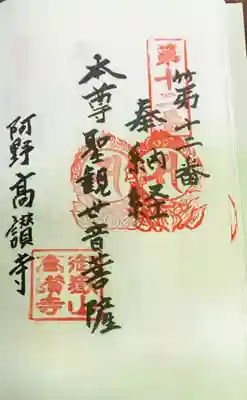 第十二番
奉納経
本尊聖観世音菩薩
阿野高讃寺
第十二
高讃寺